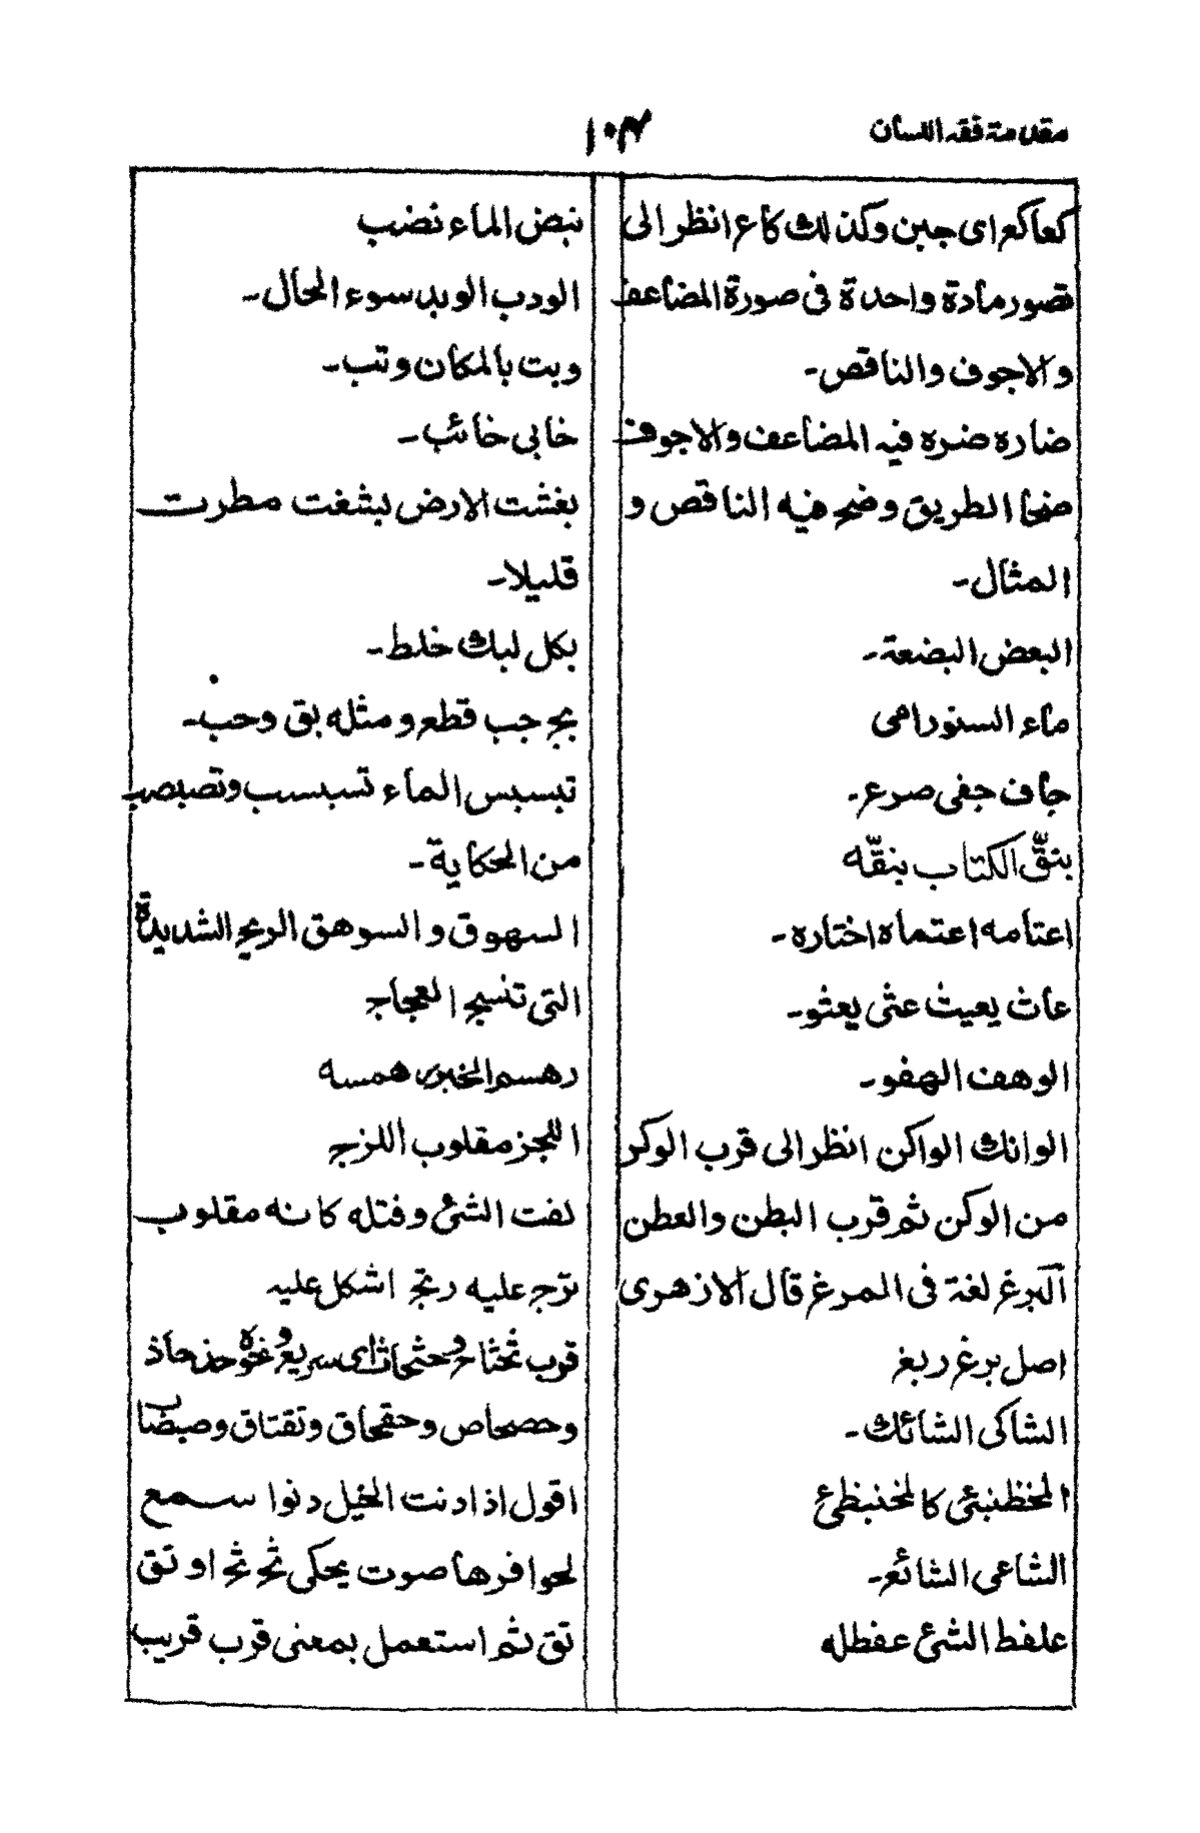 مقدمة فقه اللسان
١٠٤
كعاكع اى جبن وكذلك كاع انظر الى
تصور مادة واحدة فى صورة المضاعف
والاجوف والناقص۔
ضاره ضره فيه المضاعف والاجوف
ضحا الطريق وضح فيه الناقص و
المثال۔
البعض البضعة۔
ماء السنور امى
جاف جفى صرع۔
بنّق الكتاب بنقّه
اعتامه اعتماه اختاره۔
عاث يعيث عثى يعثو۔
الوهف الهفو۔
الوانك الواكن انظر الى قرب الوكر
من الوكن ثم قرب البطن والعطن
البرغ لغة فى المرغ قال الازهرى
اصل برغ ربغ
الشاكى الشائك۔
المخظنبئى كالمخنبظئ
الشاعى الشائع۔
علفط الشئ عفطله
نبض الماء نضب
الودب الوبد سوء الحال۔
وبت بالمكان وتب۔
خابى خائب۔
بغشت الارض بشغت مطرت
قليلا۔
بكل لبك خلط۔
بج جب قطع ومثله بق وحب۔
تبسبس الماء تسبسب وتصبصب
من الحكاية۔
السهوق والسوهق الريح الشديدة
التى تنسج العجاج
رهسم الخبر همسه
اللجز مقلوب اللزج
لفت الشئ وفتله كانه مقلوب
ترج عليه رتج اشكل عليه
قرب ثحثاح وحثحاث اى سريع ونحوه حذحاذ
وحصحاص وحقحاق وتقتاق وصبضاب
اقول اذا دنت الخيل دنوا سمع
لحوافرها صوت يحكى ثح ثح او تق
تق ثم استعمل بمعنى قرب قريب